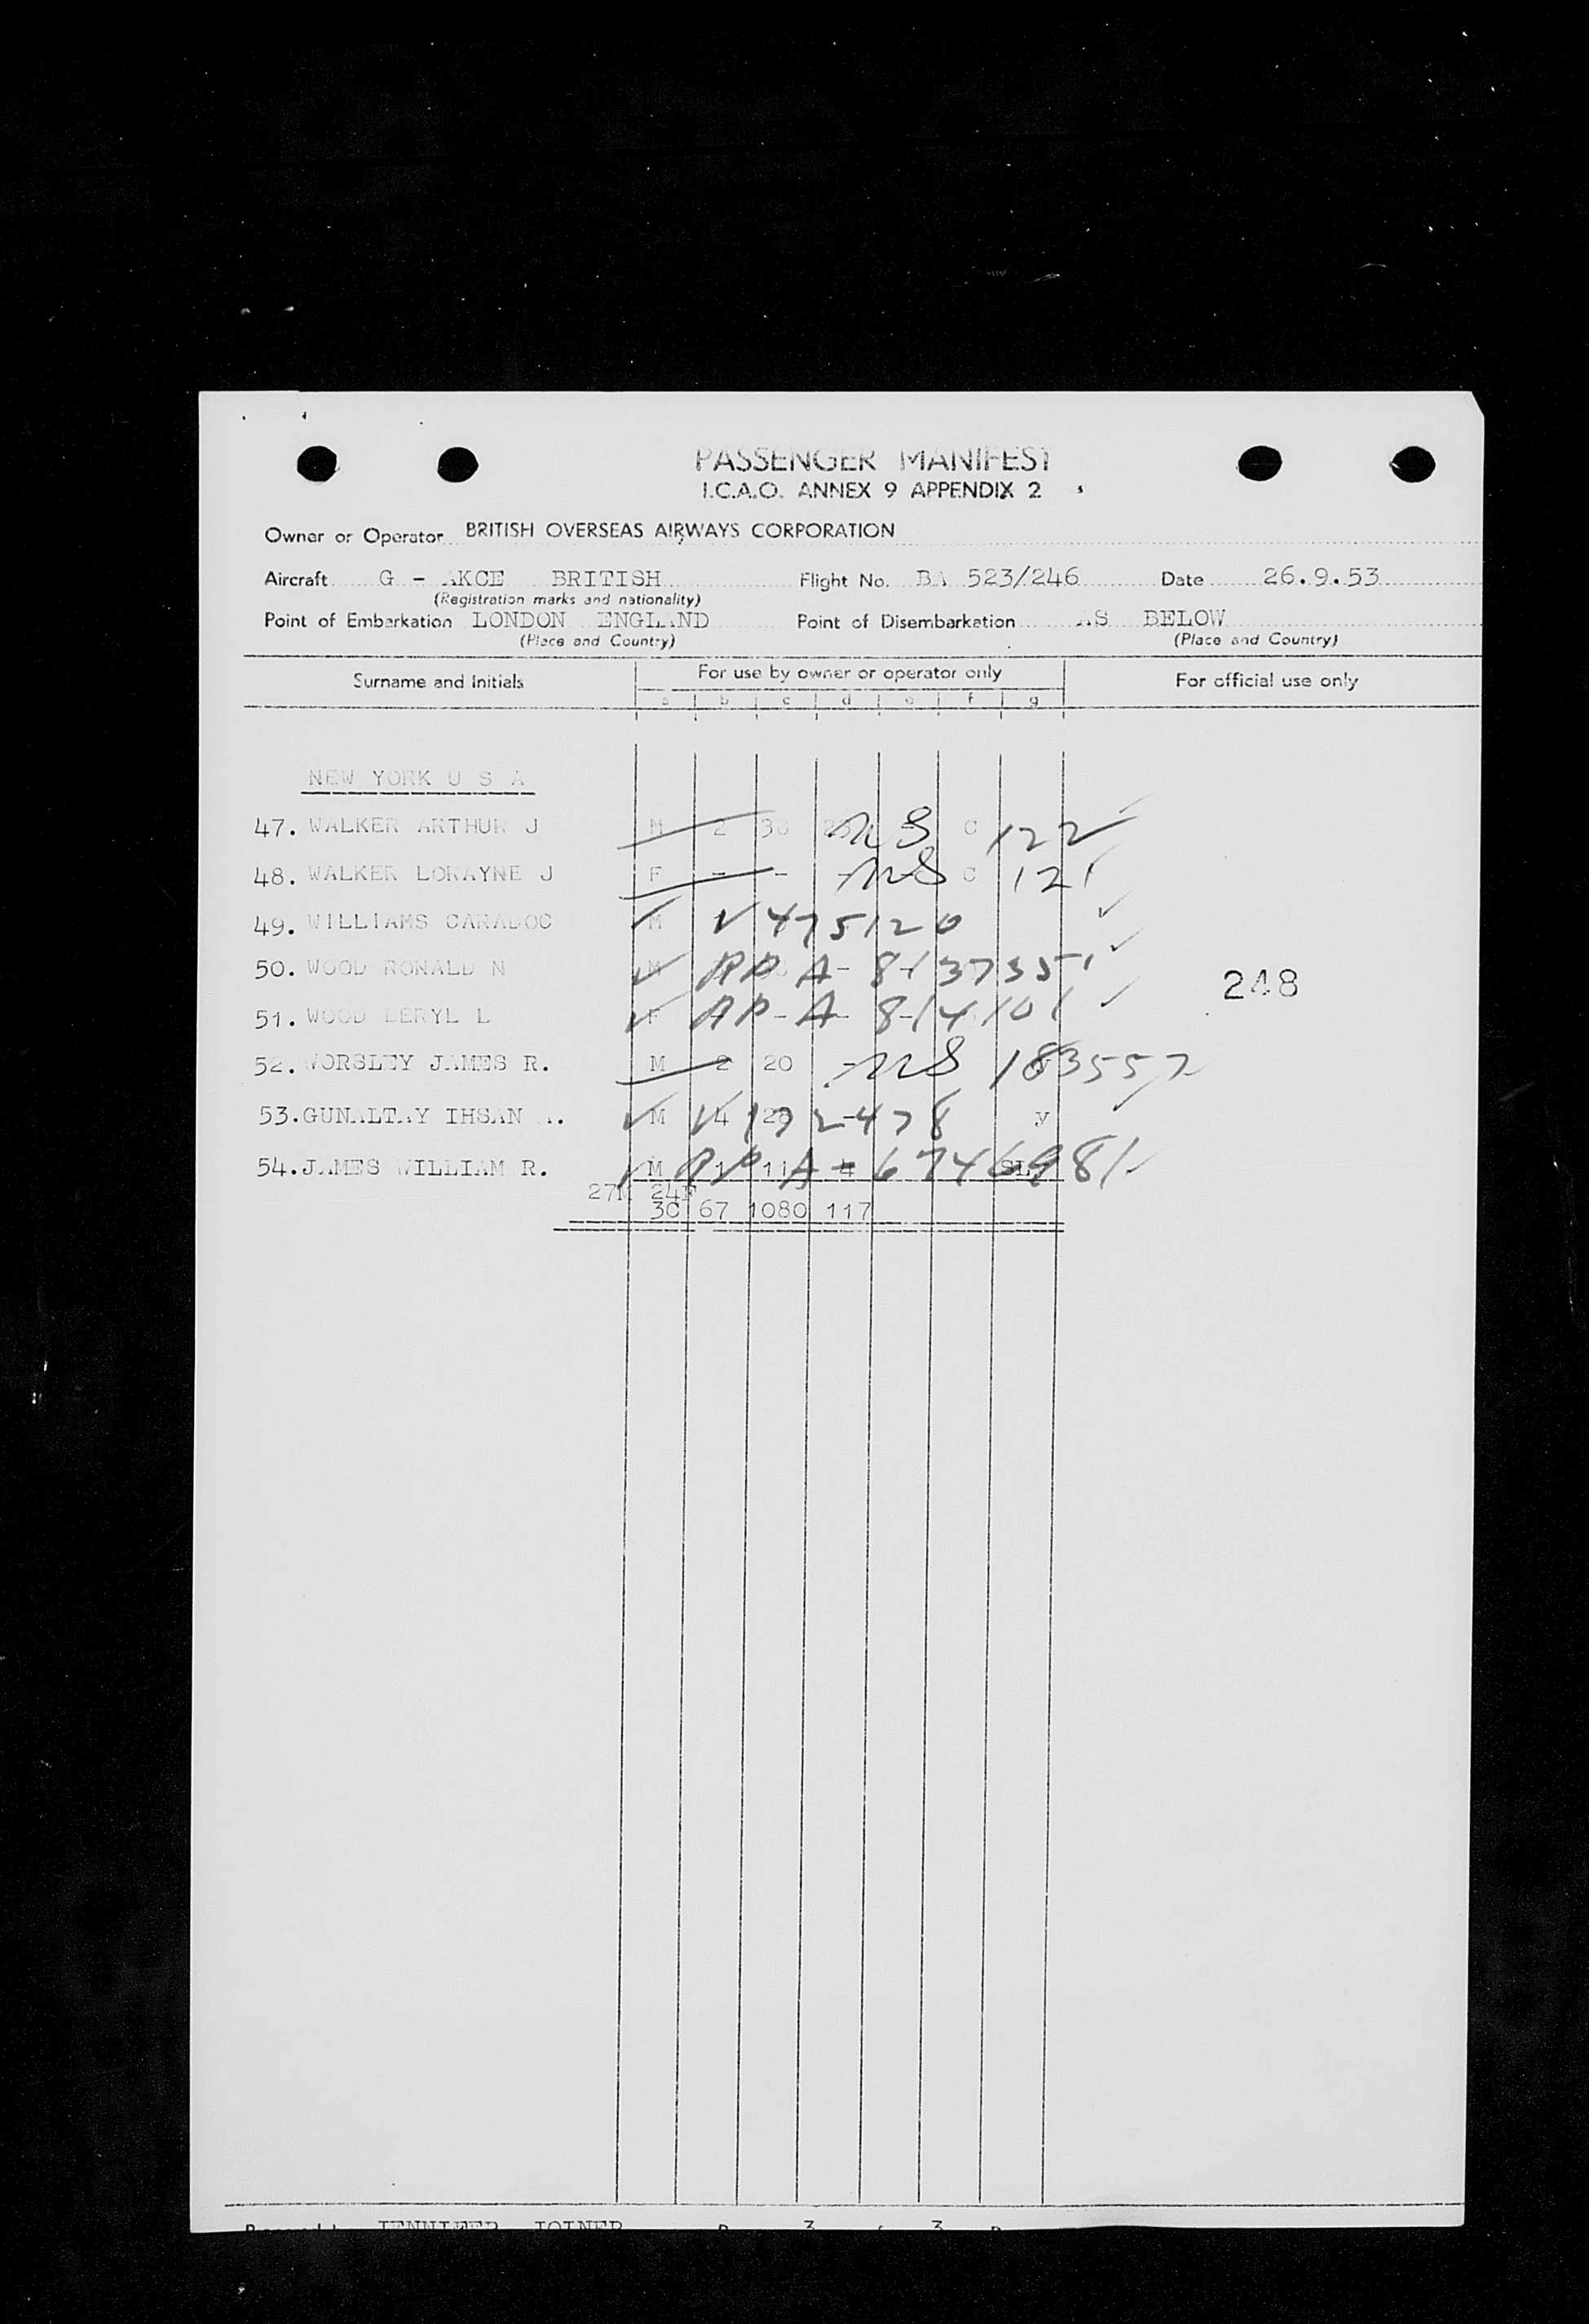 PASSENGER MANIFEST
I.C.A.O. ANNEX 9 APPENDIX 2
Owner or Operator BRITISH OVERSEAS AIRWAYS CORPORATION
Aircraft G - AKCE BRITISH Flight No. BA 523/246 Date 26.9.53
(Registration marks and nationality)
Point of Embarkation LONDON ENGLAND Point of Disembarkation AS BELOW
(Place and Country) (Place and Country)
Surname and Initials For use by owner or operator only For official use only
a b c d e f g
NEW YORK U S A
47. WALKER ARTHUR J M 2 30 NS C 122
48. WALKER LORAYNE J F - - - NS C 121
49. WILLIAMS CARADOC M V 475120
50. WOOD RONALD N M A- 8137351
51. WOOD BERYL L F - A- 814101
248
52. WORSLEY JAMES R. M 2 20 - NS 183557
53. GUNALTAY IHSAN A. M V 4 - y
54. JAMES WILLIAM R. M 1 11 A- 6746981
27M 24F
3C 67 1080 117
JENNIFER JOINER